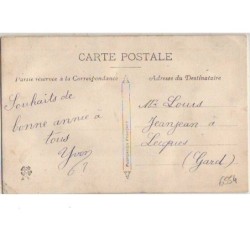 CARTE POSTALE
Partie réservée à la Correspondance
Adresse du Destinataire
Souhaits de
bonne année à
tous
Yvon
Mr Louis
Jeanjean à
(Gard)